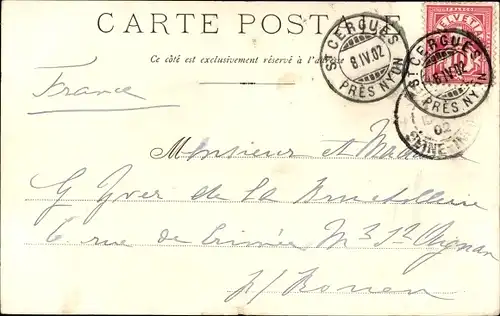 CARTE POSTALE
Ce côté est exclusivement réservé à l'adresse
ST CERGUES
8.IV.02
PRÈS NYON
FRANCO
HELVETIA
10
ST CERGUES
8.IV.02
PRÈS NYON
02
SEINE-INF
France
Monsieur et Madame
G Yver de la Bruchollerie
6 rue de Crimée Mt St Aignan
p/ Rouen